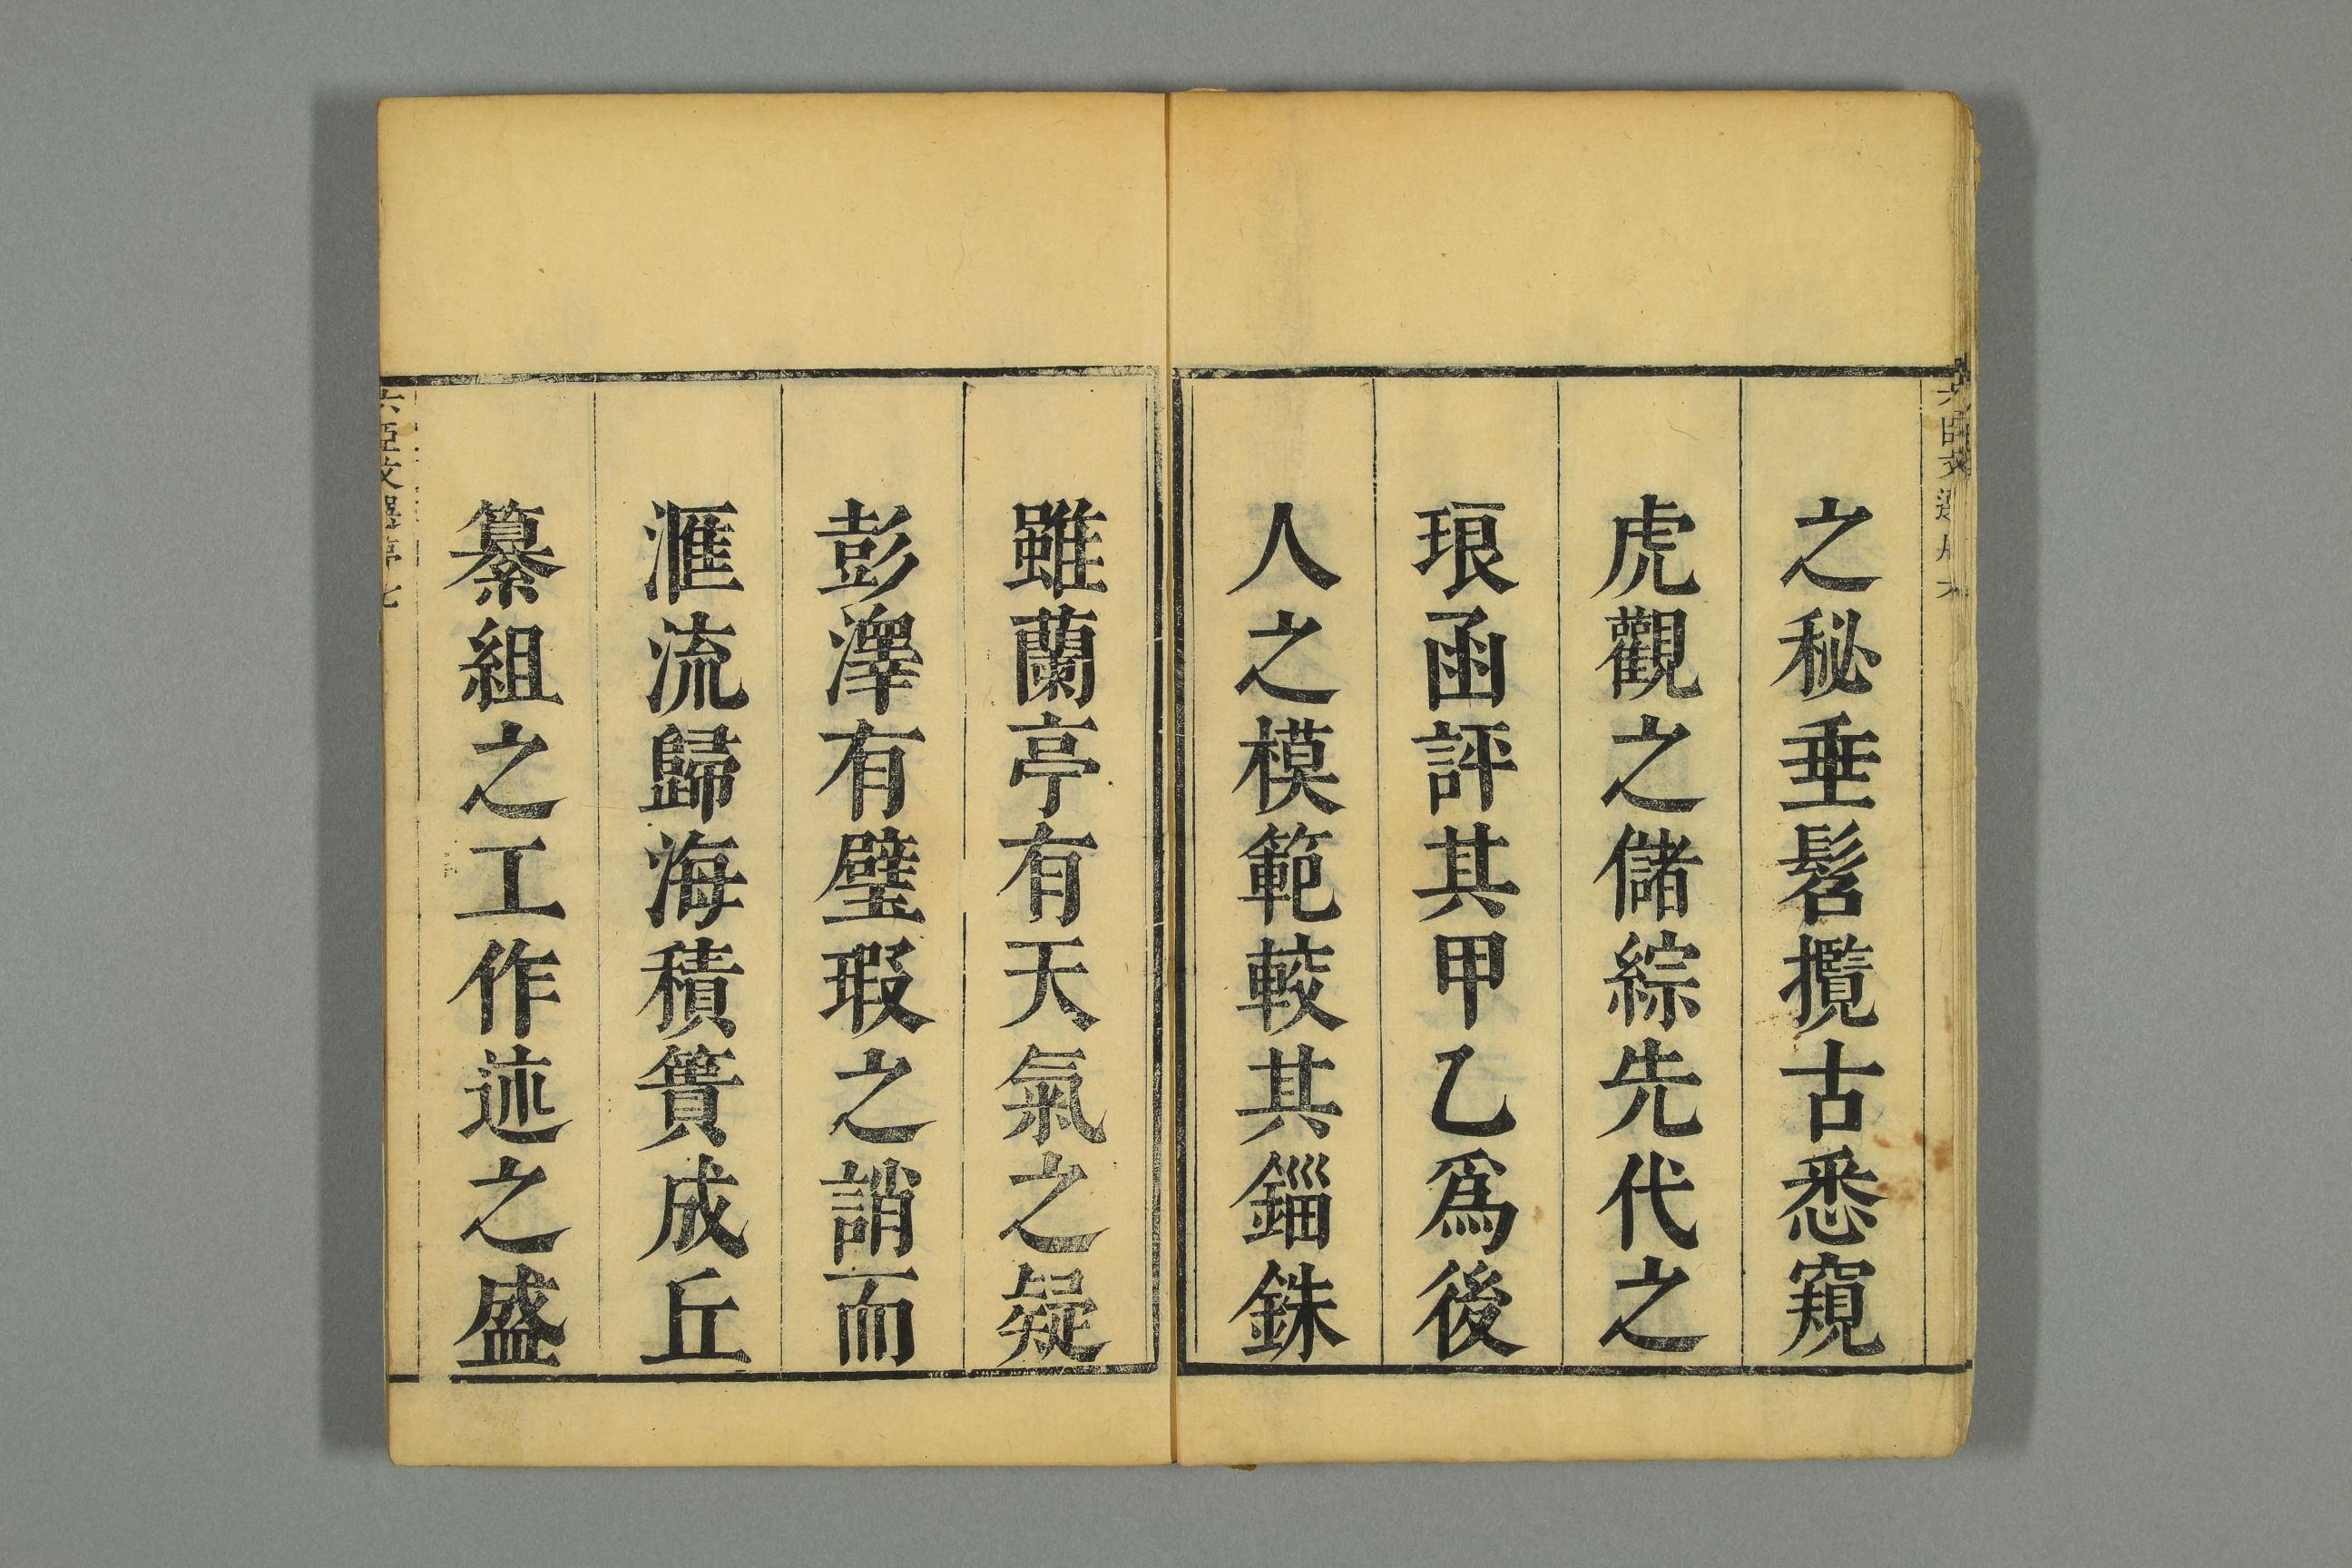 之秘垂髫攬古悉窺
虎觀之儲綜先代之
琅函評其甲乙爲後
人之模範較其錙銖
雖蘭亭有天氣之疑
彭澤有璧瑕之誚而
滙流歸海積簣成丘
纂組之工作述之盛